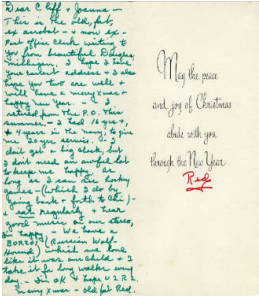 Dear Cliff & Joanna -
This is the old, fat,
ex acrobat - & now ex -
Post office Clerk writing to
you from beautiful
Michigan, I hope I have
your latest address & also
hope you two are well &
will have a merry xmas &
happy new year. - I
retired from the P.O. this
summer - I had 16 yrs +
& 4 years in the navy, to give
me 20 yrs service. I
don't get a big check, but
I don't need an awful lot
to keep me happy as
long as I can see hockey
games - (which I do by
going back & forth to Chi) -
eat regularly & hear
good music on our stereo,
I'm happy. - We have a
BORZOI (Russian Wolf
Hound) which we love
like it was our child & I
take it for long walks every
day. - I'm OK & hope U 2 R.
Merry Xmas - old fat Red.
May the peace
and joy of Christmas
abide with you
through the New Year
Red